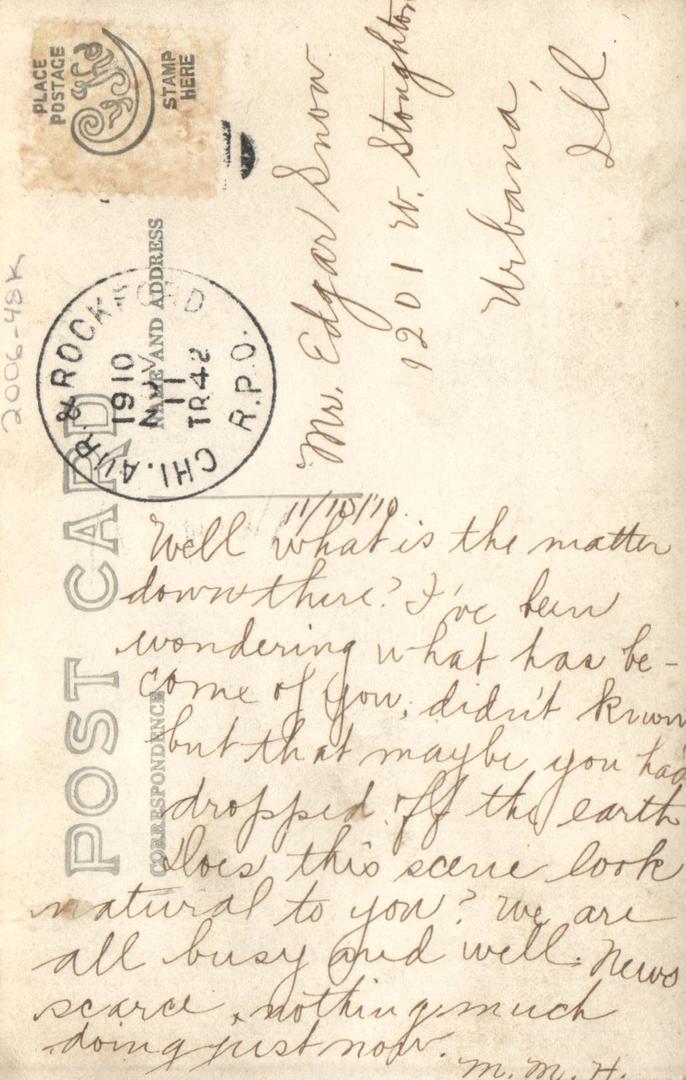 PLACE
POSTAGE
STAMP
HERE
2006-48K
POST CARD
NAME AND ADDRESS
CORRESPONDENCE
CHI. AUR. & ROCKFORD R.P.O.
1910
NOV
11
TR42
Mr. Edgar Snow
1201 W. Stoughton
Urbana,
Ill
11/10/'10.
Well what is the matter
down there? I've been
wondering what has be-
come of you, didn't know
but that maybe you had
dropped off the earth
Does this scene look
natural to you? We are
all busy and well. News
scarce, nothing much
doing just now.
M. M. H.